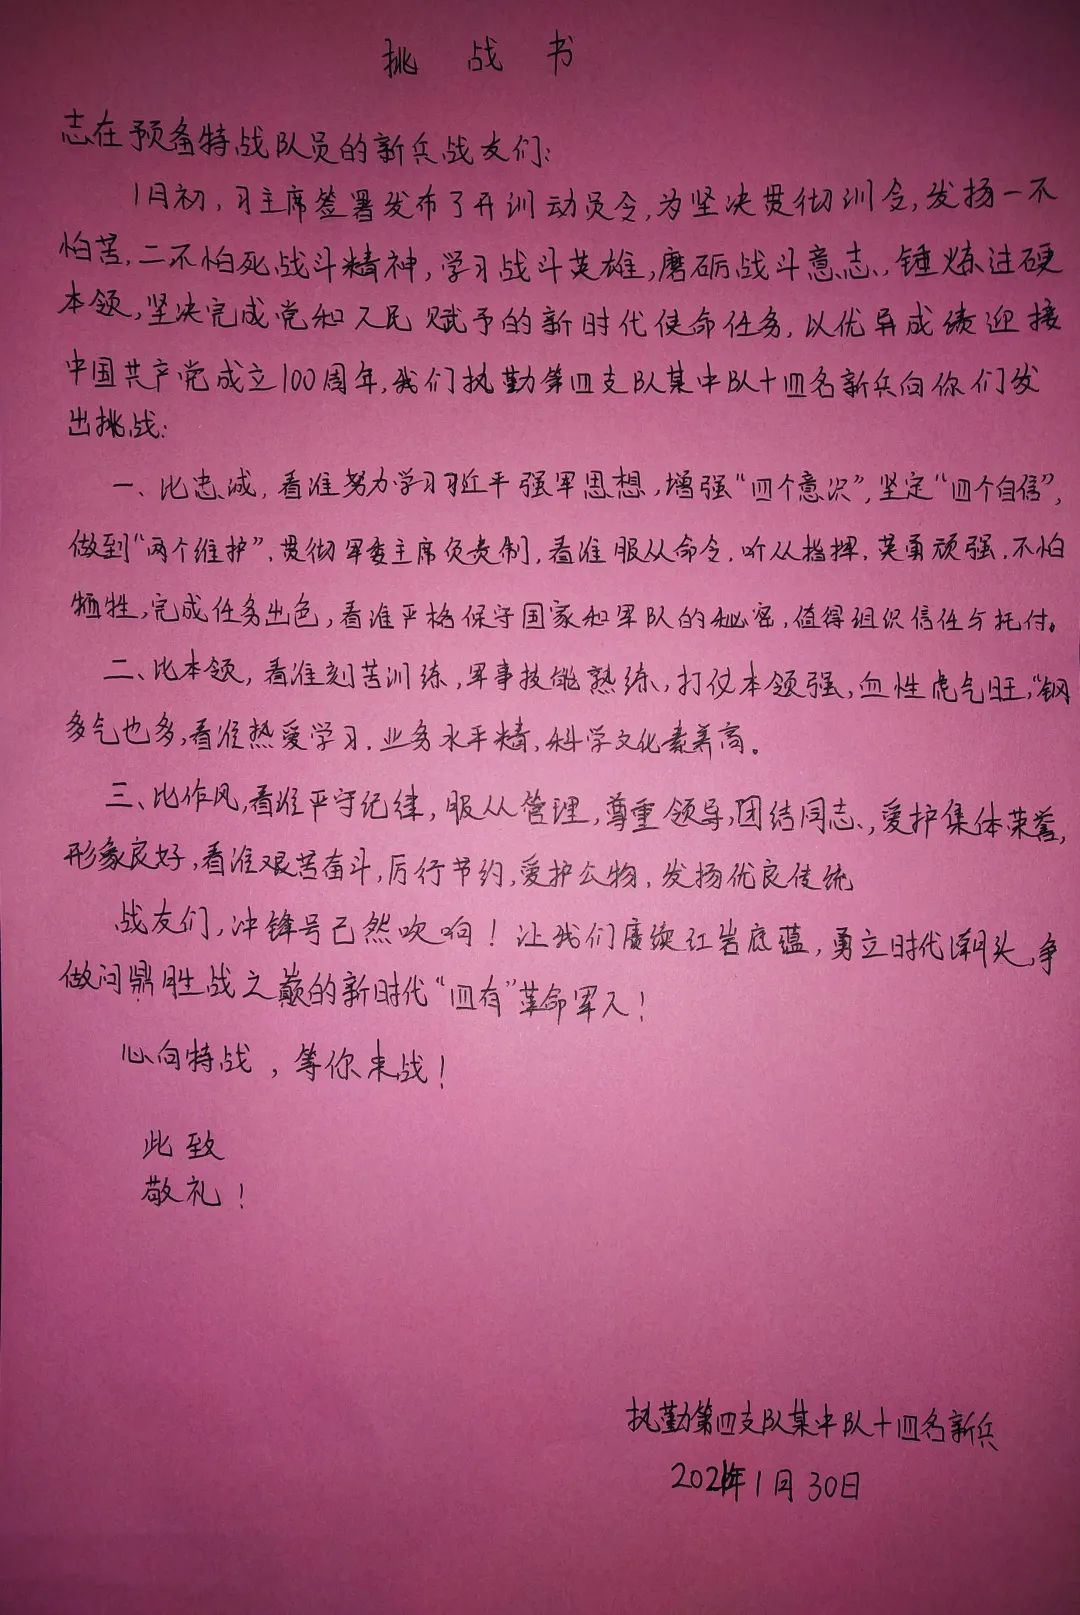 挑战书
志在预备特战队员的新兵战友们:
1月初,习主席签署发布了开训动员令,为坚决贯彻训令,发扬一不
怕苦,二不怕死战斗精神,学习战斗英雄,磨砺战斗意志,锤炼过硬
本领,坚决完成党和人民赋予的新时代使命任务,以优异成绩迎接
中国共产党成立100周年,我们执勤第四支队某中队十四名新兵向你们发
出挑战:
一、比忠诚,看准努力学习习近平强军思想,增强“四个意识”,坚定“四个自信”,
做到“两个维护”,贯彻军委主席负责制,看准服从命令,听从指挥,英勇顽强,不怕
牺牲,完成任务出色,看准严格保守国家和军队的秘密,值得组织信任与托付。
二、比本领,看准刻苦训练,军事技能熟练,打仗本领强,血性虎气旺,“钢
多气也多,看准热爱学习,业务水平精,科学文化素养高。
三、比作风,看准严守纪律,服从管理,尊重领导,团结同志,爱护集体荣誉,
形象良好,看准艰苦奋斗,厉行节约,爱护公物,发扬优良传统
战友们,冲锋号已然吹响!让我们赓续红岩底蕴,勇立时代潮头,争
做问鼎胜战之巅的新时代“四有”革命军人!
心向特战,等你来战!
此致
敬礼!
执勤第四支队某中队十四名新兵
2021年1月30日